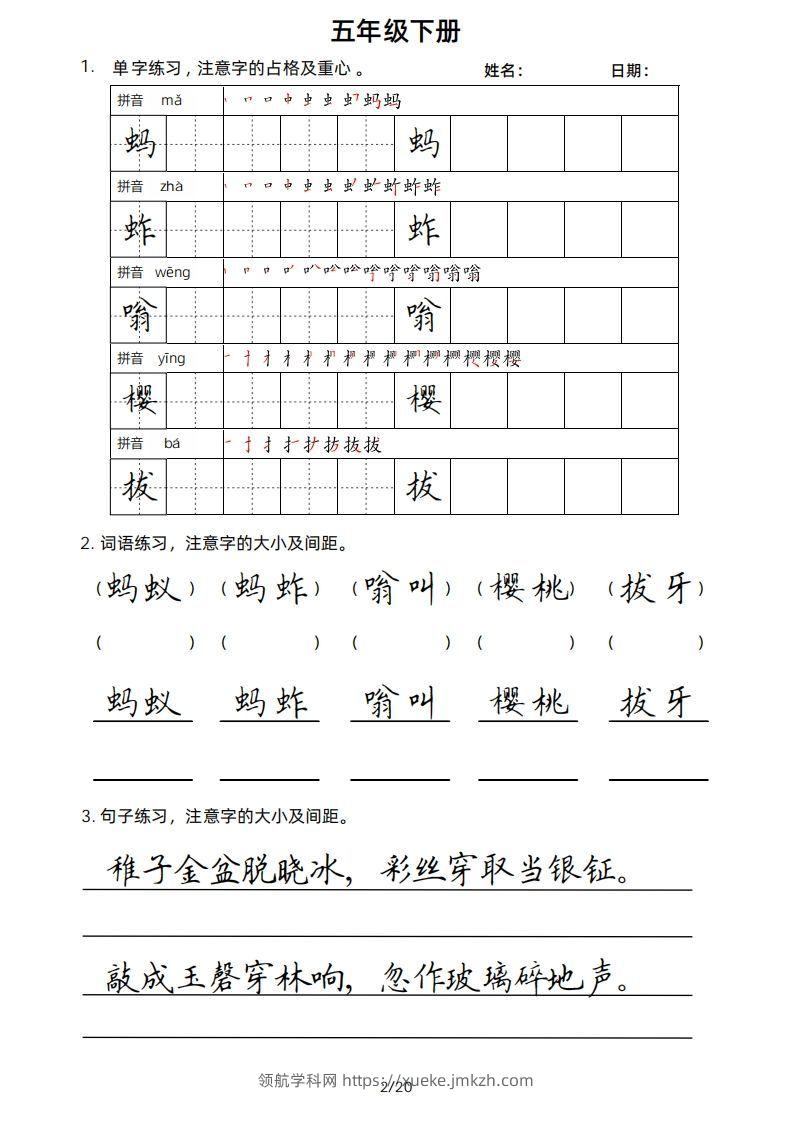 五年级下册
1. 单字练习，注意字的占格及重心。 姓名： 日期：
拼音 mǎ 丶 口 口 中 虫 虫 虫 蚂 蚂
蚂 蚂
拼音 zhà 蚱 蚱
蚱 蚱
拼音 wēng 嗡 嗡 嗡
嗡 嗡
拼音 yīng 樱 樱 樱
樱 樱
拼音 bá 拔 拔 拔
拔 拔
2. 词语练习，注意字的大小及间距。
（蚂蚁） （蚂蚱） （嗡叫） （樱桃） （拔牙）
（ ） （ ） （ ） （ ） （ ）
蚂蚁 蚂蚱 嗡叫 樱桃 拔牙
3. 句子练习，注意字的大小及间距。
稚子金盆脱晓冰，彩丝穿取当银钲。
敲成玉磬穿林响，忽作玻璃碎地声。
领航学科网 https://xueke.jmkzh.com
2/20